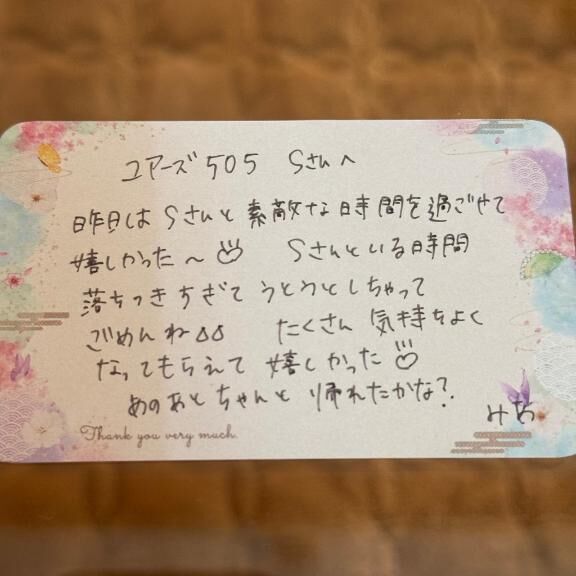 ユアーズ505 Sさんへ
昨日はSさんと素敵な時間を過ごせて
嬉しかった〜♡ Sさんといる時間
落ちつきすぎてうとうとしちゃって
ごめんね💧💧 たくさん気持ちよく
なってもらえて嬉しかった♡
あのあとちゃんと帰れたかな?
みお
Thank you very much.